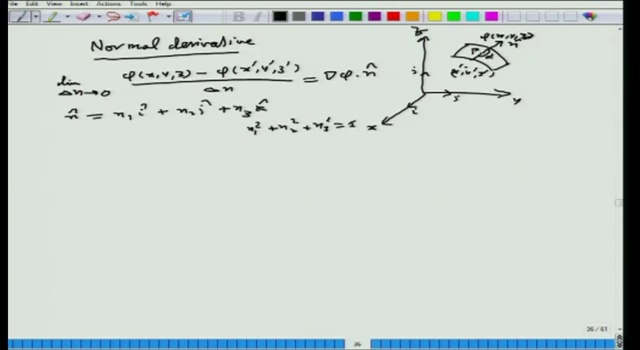 Edit View Insert Actions Tools Help
Normal derivative
lim Δn→0 φ(x,y,z) − φ(x',y',z') / Δn = ∇φ·n̂
n̂ = n₁ î + n₂ ĵ + n₃ k̂
n₁² + n₂² + n₃² = 1
z
φ(x,y,z)
n
(x',y',z')
y
x
36 / 61
36